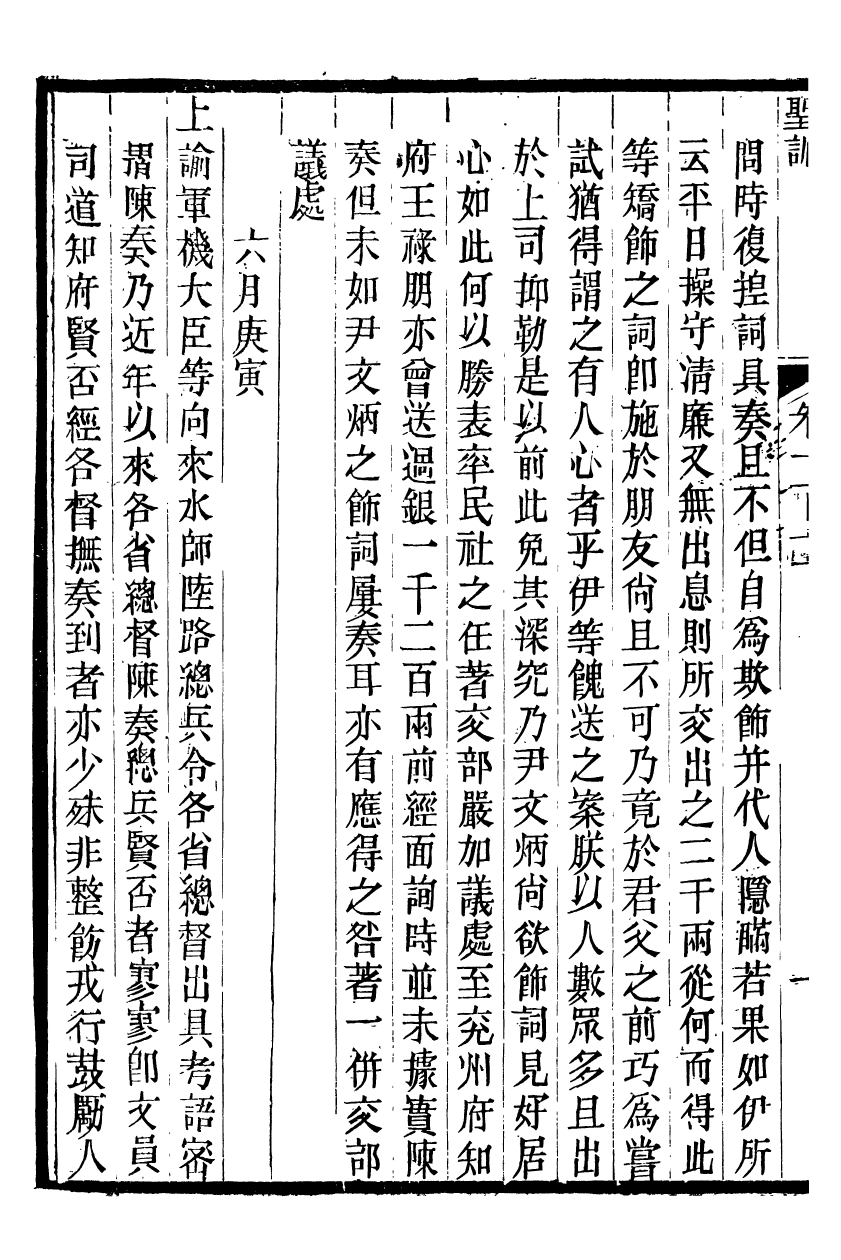 聖訓
問時復揑詞具奏且不但自爲欺飾并代人隱瞞若果如伊所
云平日操守淸廉又無出息則所交出之二千兩從何而得此
等矯飾之詞卽施於朋友尙且不可乃竟於君父之前巧爲嘗
試猶得謂之有人心者乎伊等餽送之案朕以人數眾多且出
於上司抑勒是以前此免其深究乃尹文炳尙欲飾詞見好居
心如此何以勝表率民社之任著交部嚴加議處至兗州府知
府王祿朋亦曾送過銀一千二百兩前經面詢時並未據實陳
奏但未如尹文炳之飾詞屢奏耳亦有應得之咎著一併交部
議處
六月庚寅
上諭軍機大臣等向來水師陸路總兵令各省總督出具考語密
摺陳奏乃近年以來各省總督陳奏總兵賢否者寥寥卽文員
司道知府賢否經各督撫奏到者亦少殊非整飭戎行鼓勵人